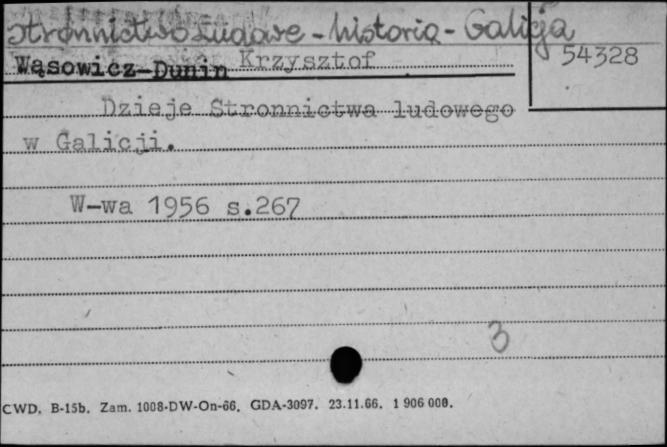 Stronnictwo Ludowe - historia - Galicja
54328
Wąsowicz-Dunin Krzysztof
Dzieje Stronnictwa ludowego
w Galicji.
W-wa 1956 s.267
3
CWD. B-15b. Zam. 1008-DW-On-66. GDA-3097. 23.11.66. 1 906 000.